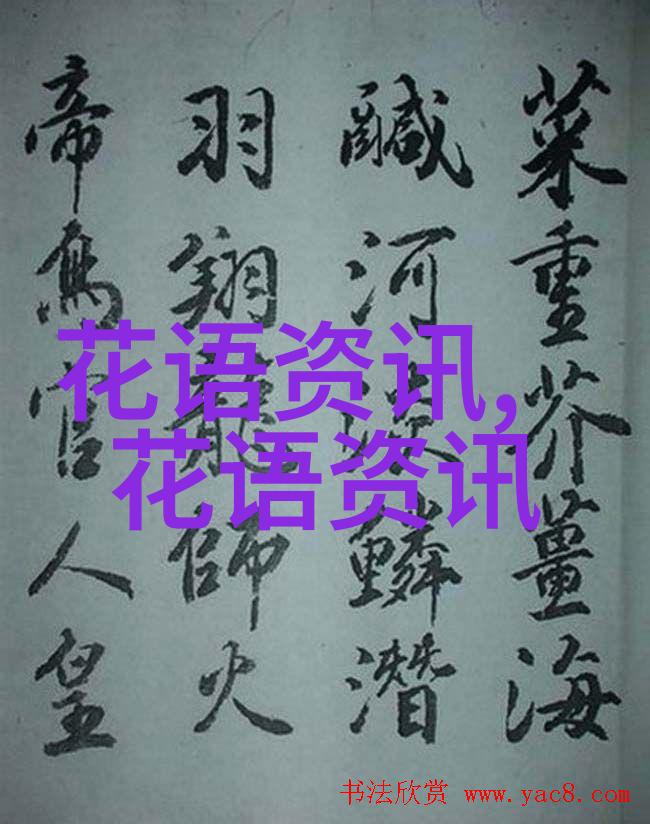 菜重芥薑海
鹹河淡鱗潛
羽翔龍師火
帝鳥官人皇
花语资讯,
花语资讯
书法欣赏 www.yac8.com